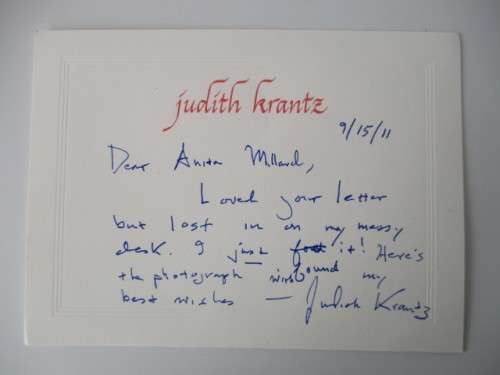 judith krantz
9/15/11
Dear Anita Millard,
Loved your letter
but lost in on my messy
desk. I just it! Here's
the photograph with found my
best wishes — Judith Krantz